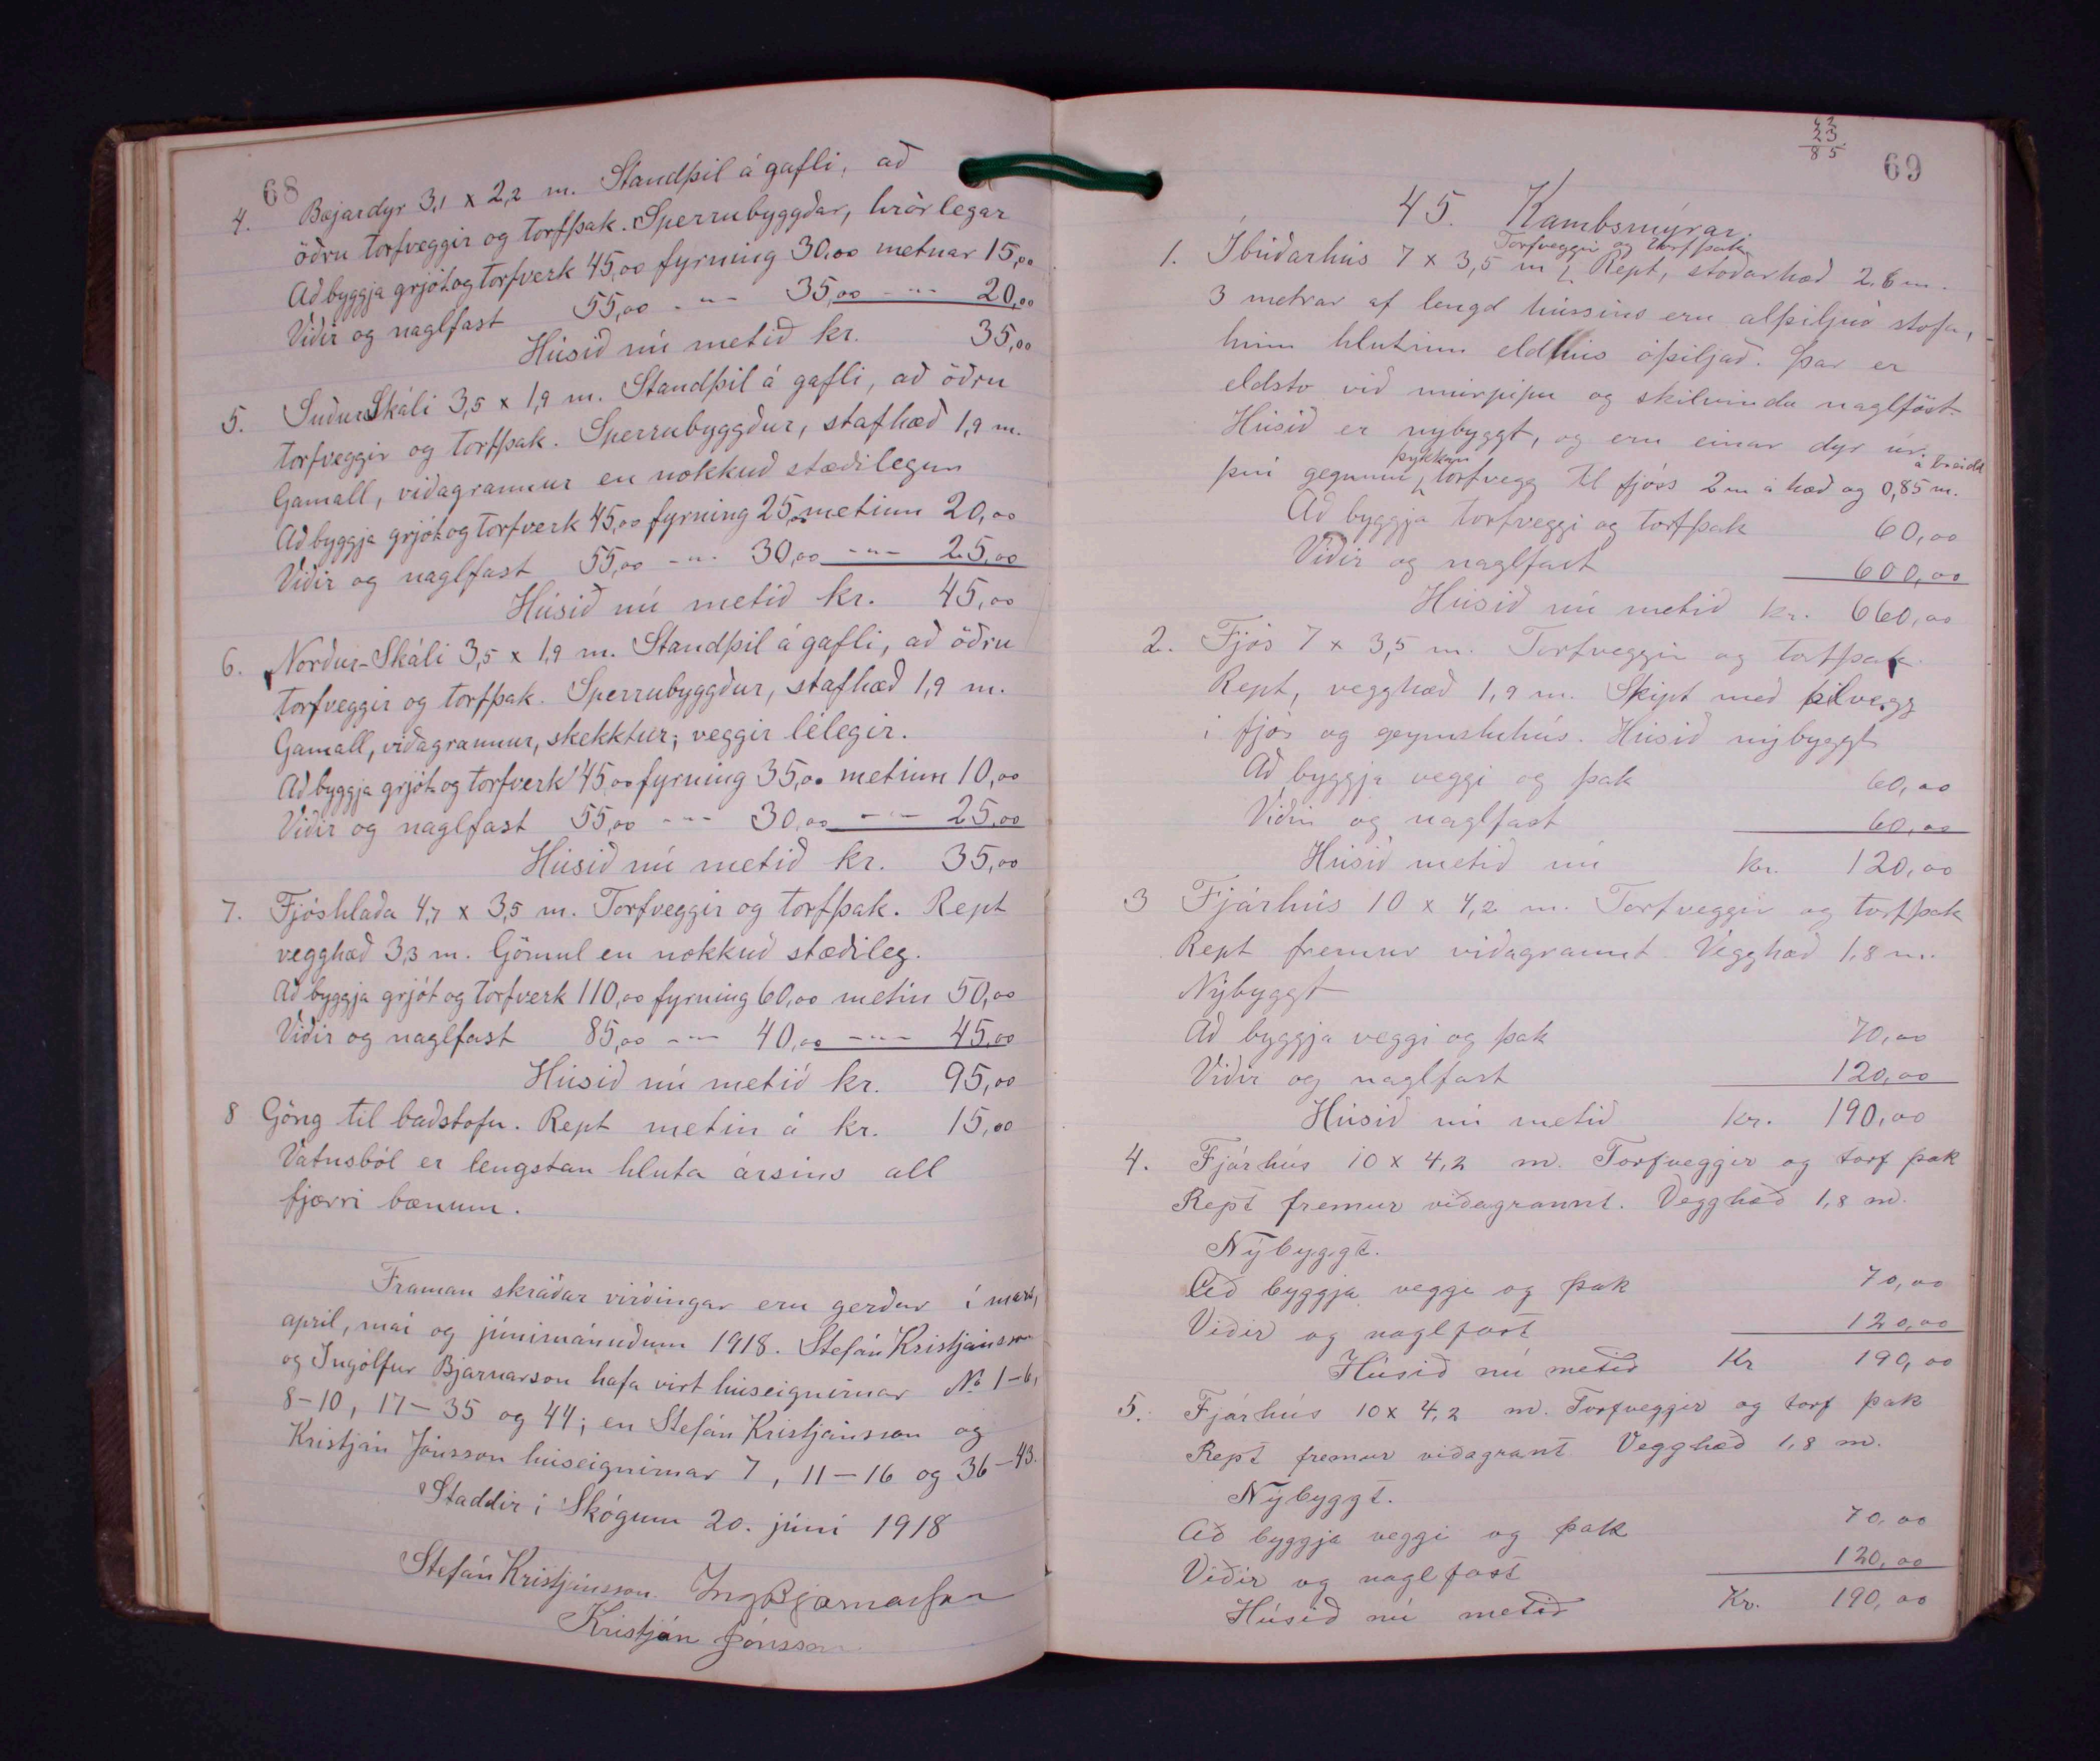 68
4. Bæjardyr 3,1 x 2,2 m. Standþil á gafli, að
öðru torfveggir og torfþak. Sperrubyggðar, hrörlegar
Að byggja grjót og torfverk 45,00 fyrning 30,00 metnar 15,00
Viðir og naglfast 55,00 -"- 35,00 -"- 20,00
Húsið nú metið kr. 35,00
5. Suður Skáli 3,5 x 1,9 m. Standþil á gafli, að öðru
torfveggir og torfþak. Sperrubyggður, stafhæð 1,9 m.
Gamall, viðagrannur en nokkuð stæðilegur
Að byggja grjót og torfverk 45,00 fyrning 25,00 metinn 20,00
Viðir og naglfast 55,00 -"- 30,00 -"- 25,00
Húsið nú metið kr. 45,00
6. Norður-Skáli 3,5 x 1,9 m. Standþil á gafli, að öðru
torfveggir og torfþak. Sperrubyggður, stafhæð 1,9 m.
Gamall, viðagrannur, skekktur; veggir lélegir.
Að byggja grjót og torfverk 45,00 fyrning 35,00 metinn 10,00
Viðir og naglfast 55,00 -"- 30,00 -"- 25,00
Húsið nú metið kr. 35,00
7. Fjóshlaða 4,7 x 3,5 m. Torfveggir og torfþak. Rept
vegghæð 3,3 m. Gömul en nokkuð stæðileg.
Að byggja grjót og torfverk 110,00 fyrning 60,00 metin 50,00
Viðir og naglfast 85,00 -"- 40,00 -"- 45,00
Húsið nú metið kr. 95,00
8 Göng til baðstofu. Rept metin á kr. 15,00
Vatnsból er lengstan hluta ársins all
fjærri bænum.
Framan skráðar virðingar eru gerðar í mars,
apríl, maí og júnímánuðum 1918. Stefán Kristjánsson
og Ingólfur Bjarnarson hafa virt húseignirnar No 1-6,
8-10, 17-35 og 44; en Stefán Kristjánsson og
Kristján Jónsson húseignirnar 7, 11-16 og 36-43.
Staddir í Skógum 20. júní 1918
Stefán Kristjánsson. Ing Bjarnarson
Kristján Jónsson
23
85
69
45. Kambsmýrar.
Torfveggir og torfþak
1. Íbúðarhús 7 x 3,5 m Rept, stoðarhæð 2,6 m.
3 metrar af lengd hússins eru alþiljuð stofa,
hinn hlutinn eldhús óþiljað. Þar er
eldstó við múrpípu og skilvinda naglföst.
Húsið er nýbyggt, og eru einar dyr úr
þykkan á breidd
því gegnum torfvegg til fjóss 2 m á hæð og 0,85 m.
Að byggja torfveggi og torfþak 60,00
Viðir og naglfast 600,00
Húsið nú metið kr. 660,00
2. Fjós 7 x 3,5 m. Torfveggir og torfþak.
Rept, vegghæð 1,9 m. Skipt með þilvegg
í fjós og geymsluhús. Húsið nýbyggt
Að byggja veggi og þak 60,00
Viðir og naglfast 60,00
Húsið metið nú kr. 120,00
3 Fjárhús 10 x 4,2 m. Torfveggir og torfþak
Rept fremur viðagrannt. Vegghæð 1,8 m.
Nýbyggt
Að byggja veggi og þak 70,00
Viðir og naglfast 120,00
Húsið nú metið kr. 190,00
4. Fjárhús 10 x 4,2 m. Torfveggir og torf þak
Rept fremur viðagrannt. Vegghæð 1,8 m.
Nýbyggt.
Að byggja veggi og þak 70,00
Viðir og naglfast 120,00
Húsið nú metið Kr 190,00
5. Fjárhús 10 x 4,2 m. Torfveggir og torf þak
Rept fremur viðagrant Vegghæð 1,8 m.
Nýbyggt.
Að byggja veggi og þak 70,00
Viðir og naglfast 120,00
Húsið nú metið Kr. 190,00